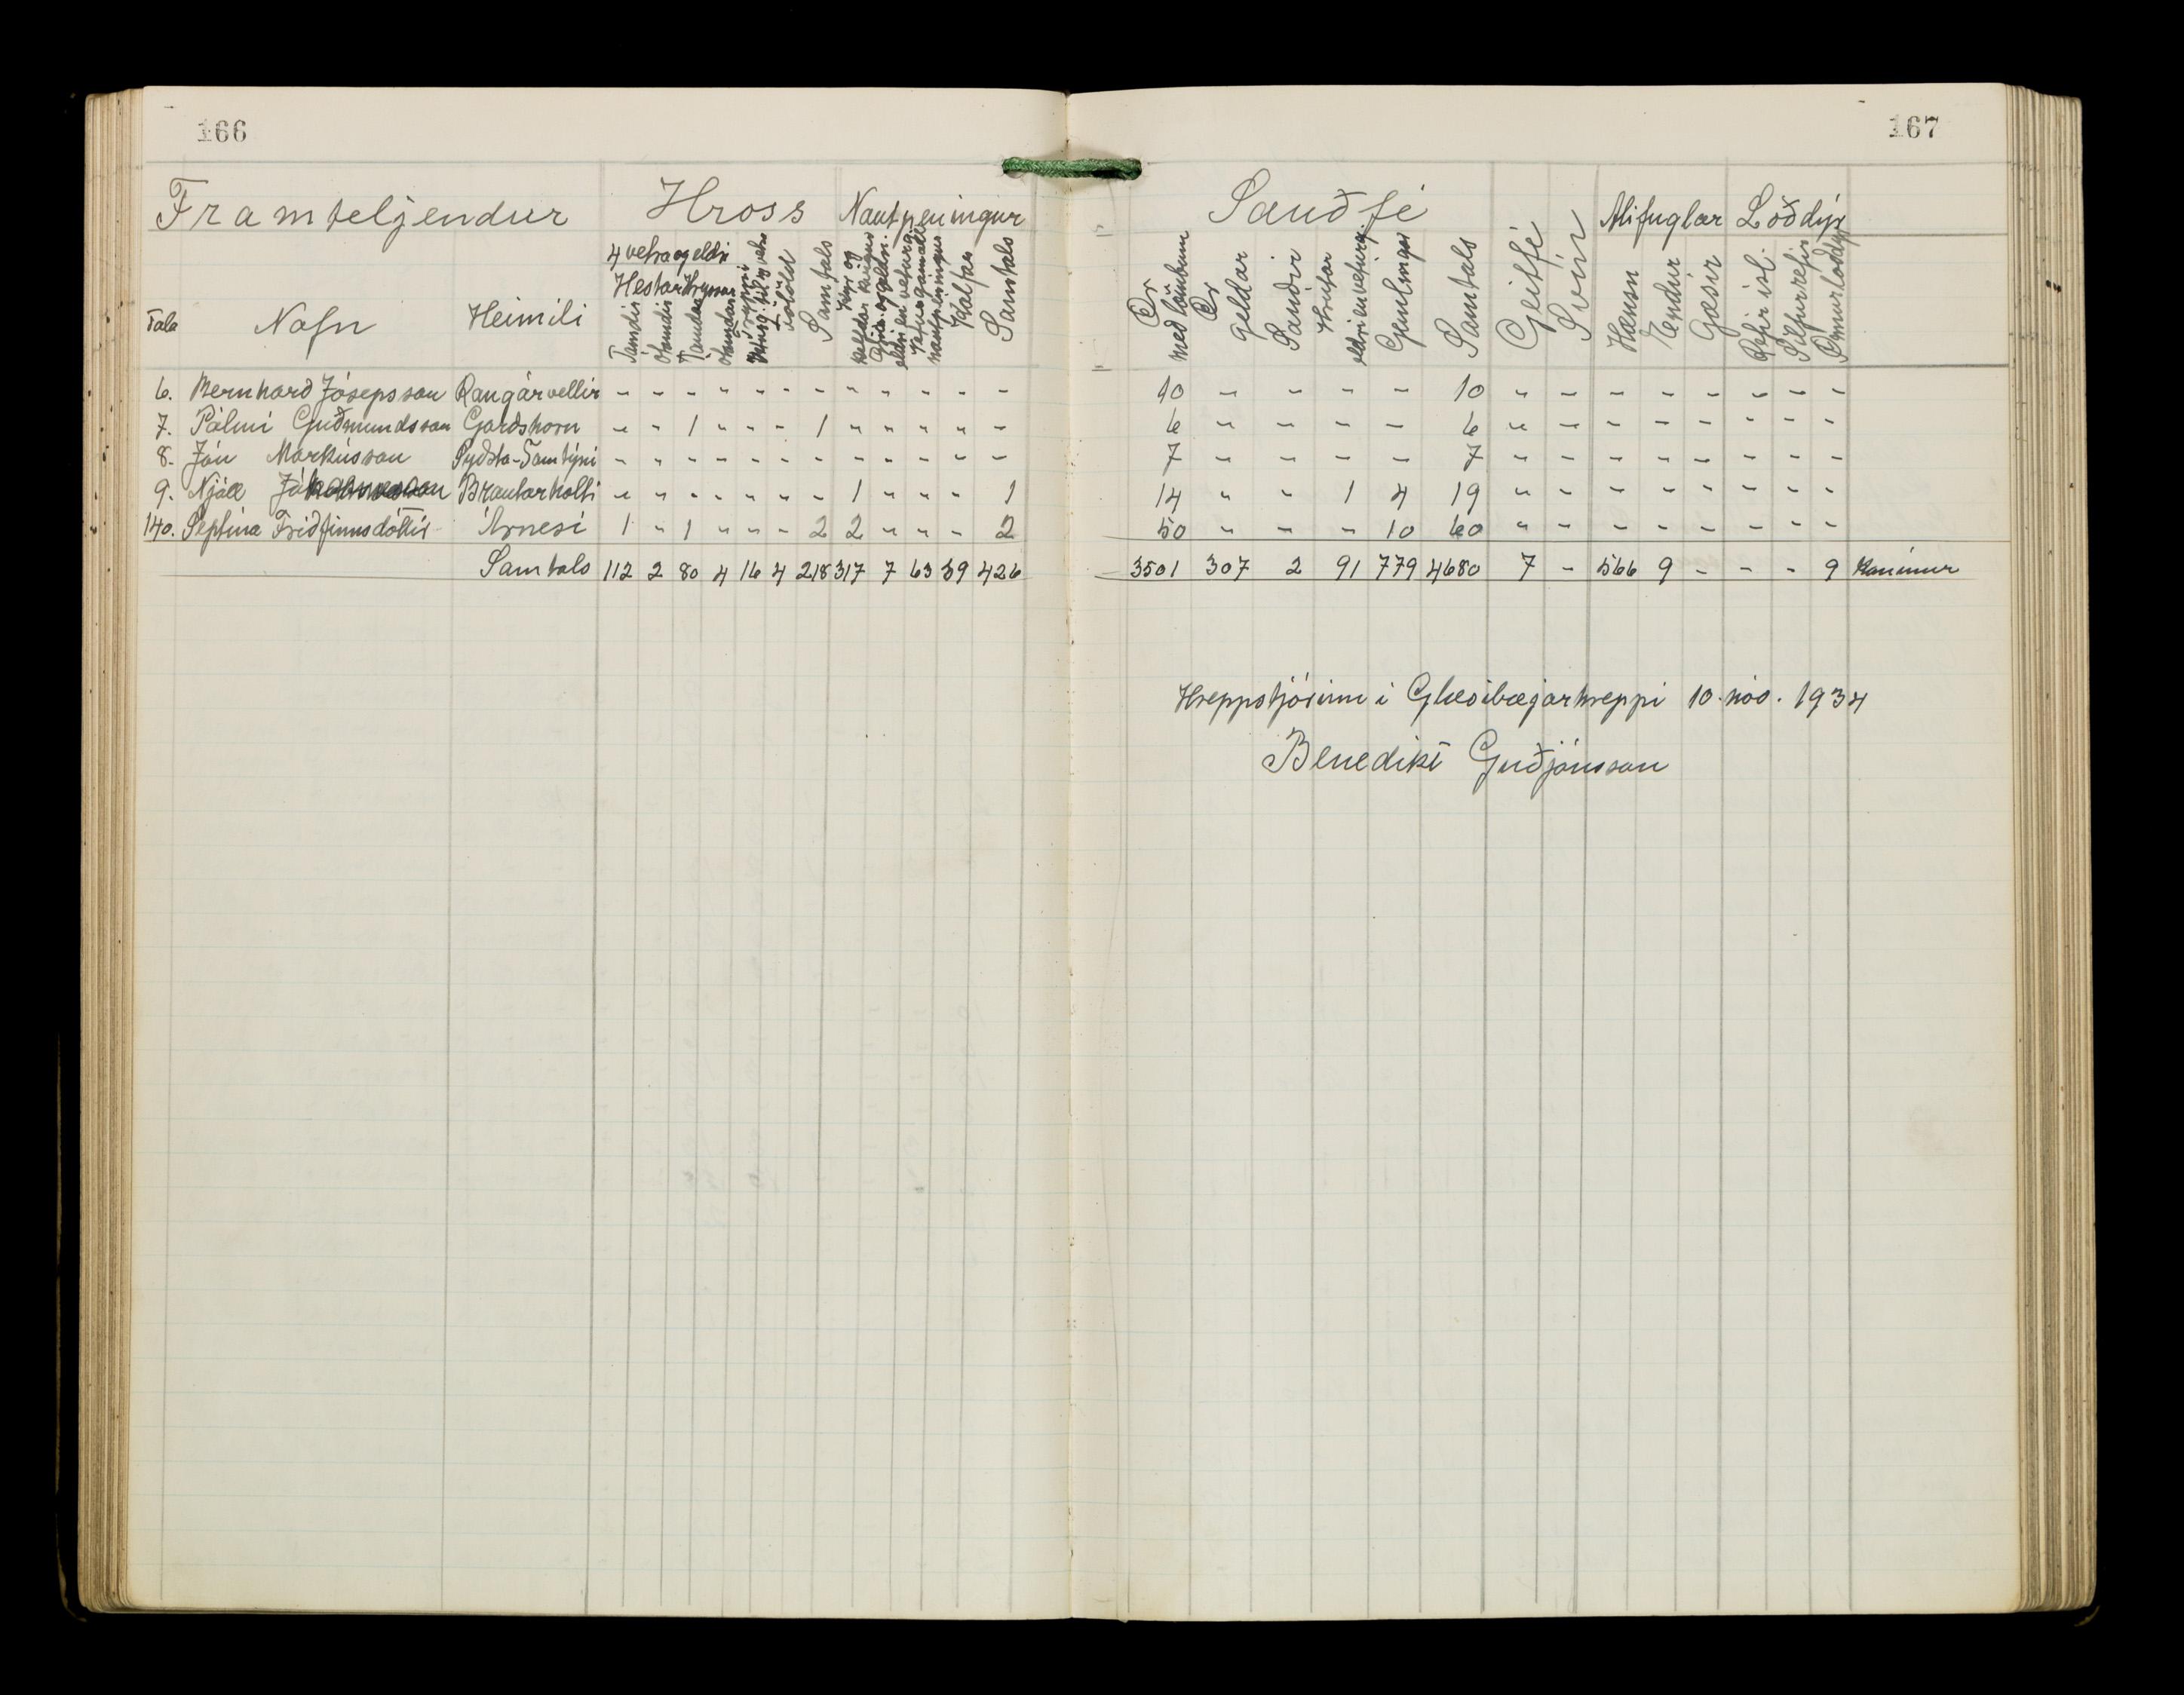 166
Framteljendur Hross Nautpeningur
4 vetra og eldri
Hestar Hryssur
Tala Nafn Heimili Tamdir Ótamdir Tamdar Ótamdar Folöld Samtals Kýr og kelfdar kvígur Kálfar Samtals
6. Bernharð Jósepsson Rangárvellir - - - - - - - - - - - -
7. Pálmi Guðmundsson Garðshorn - - 1 - - - 1 - - - - -
8. Jón Markússon Syðsta-Samtýni - - - - - - - - - - - -
9. Njáll Brautarholti - - - - - - - 1 - - - 1
140. Septína Friðfinnsdóttir Árnesi 1 - 1 - - - 2 2 - - - 2
Samtals 112 2 80 4 16 4 218 317 7 63 39 426
167
Sauðfé Geitfé Svín Alifuglar Loðdýr
Ær með lömbum Ær geldar Sauðir Hrútar eldri en veturg. Gemlingar Samtals Hænsn Endur Gæsir Refir ísl. Silfurrefir Önnur loðdýr
10 - - - - 10 - - - - - - - -
6 - - - - 6 - - - - - - - -
7 - - - - 7 - - - - - - - -
14 - - 1 4 19 - - - - - - - -
50 - - - 10 60 - - - - - - - -
3501 307 2 91 779 4680 7 - 566 9 - - - 9 Kanínur
Hreppstjórinn í Glæsibæjarhreppi 10. nóv. 1934
Benedikt Guðjónsson